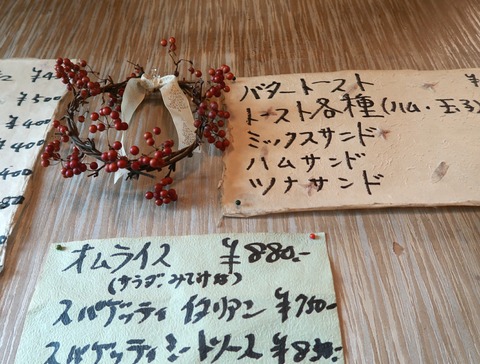 ¥500
¥400
¥400
バタートースト ¥
トースト各種(ハム・玉子
ミックスサンド
ハムサンド
ツナサンド
オムライス ¥880.-
スパゲッティ イタリアン ¥750-
スパゲッティ ミートソース ¥830.-